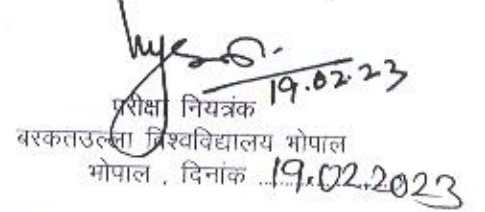 19.02.23
परीक्षा नियत्रंक
बरकतउल्ला विश्वविद्यालय भोपाल
भोपाल , दिनांक 19.02.2023